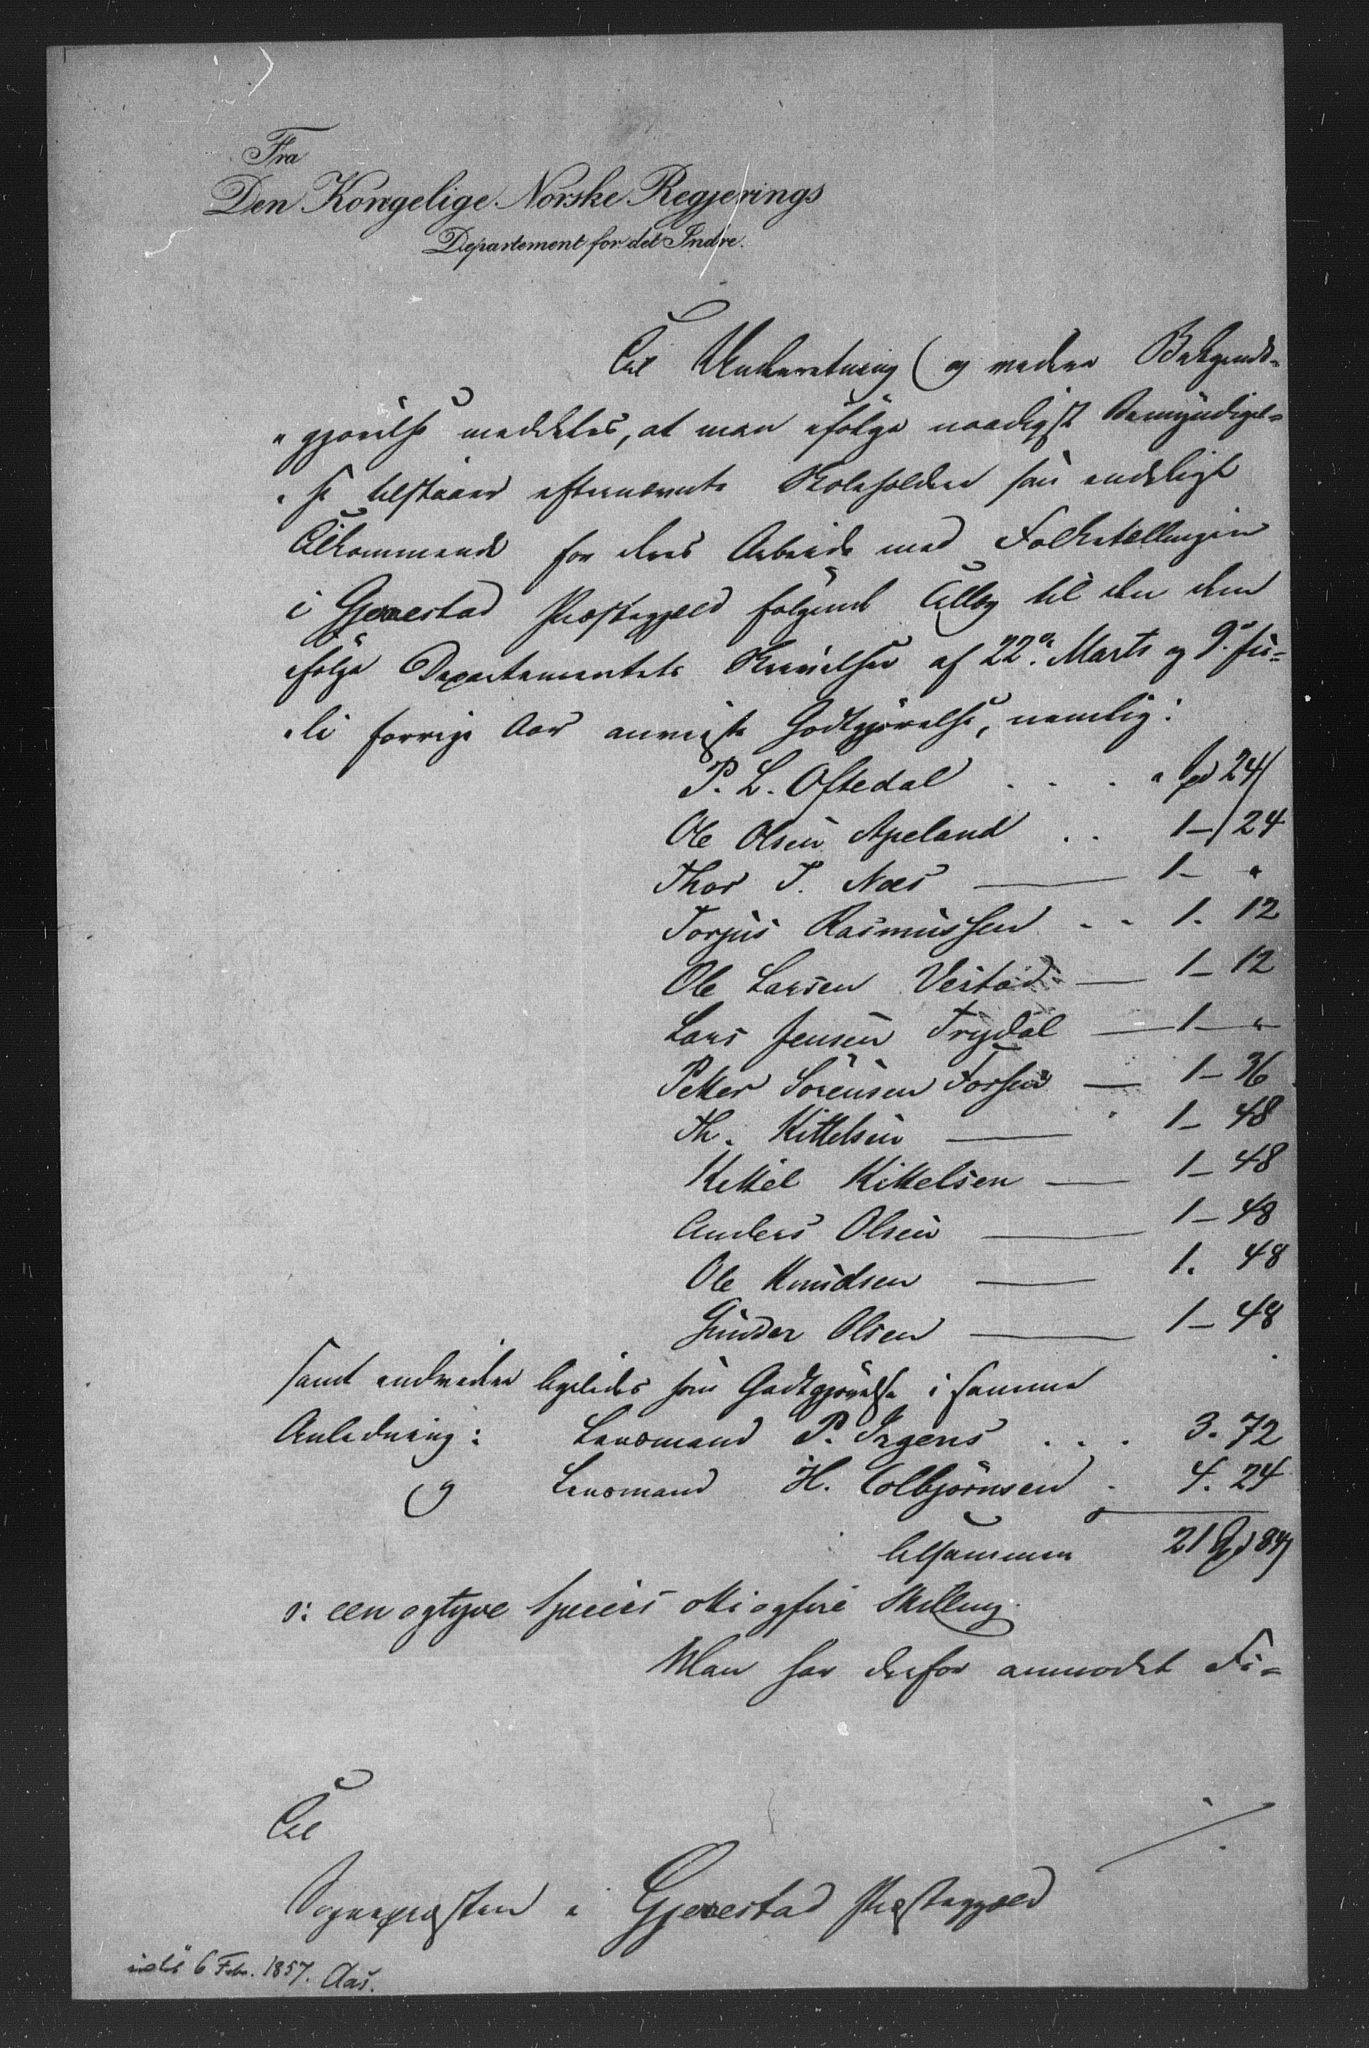 Fra
Den Kongelige Norske Regjerings
Departement for det Indre.
Til Underretning og videre Bekjendt-
gjørelse meddeles, at man ifölge naadigst Bemyndigel-
se tilstaaer efternævnte Skoleholdere som endeligt
Tilkommende for deres Arbeide med Folketællingen
i Gjerestad Præstegjeld følgende Tillæg til den dem
ifölge Departementets Skrivelser af 22de Marts og 9de Ju-
li forrige Aar anviste Godtgjörelse, nemlig:
P. L. Oftedal . . . " Spd 24
Ole Olsen Apeland . . 1 - 24
Thor T. Næs — 1 - "
Torjus Rasmussen . . 1. 12
Ole Larsen Vestøl — 1 - 12
Lars Jensen Trydal — 1 - "
Petter Sörensen — 1 - 36
Th. Kittelsen — 1 - 48
Kittel Kittelsen — 1 - 48
Anders Olsen — 1 - 48
Ole Knudsen — 1. 48
Gunder Olsen — 1 - 48
samt endvidere ligeledes som Godtgjörelse i samme
Anledning: Lensmand P. Irgens . . . 3. 72
og Lensmand H. Colbjörnsen . 4. 24
tilsammen 21 Spd 84
o: een og tyve Species otti og fire Skilling.
Man har derfor anmodet Fi-
Til
Sognepræsten i Gjerestad Præstegjeld
6 Febr. 1857. Aas.